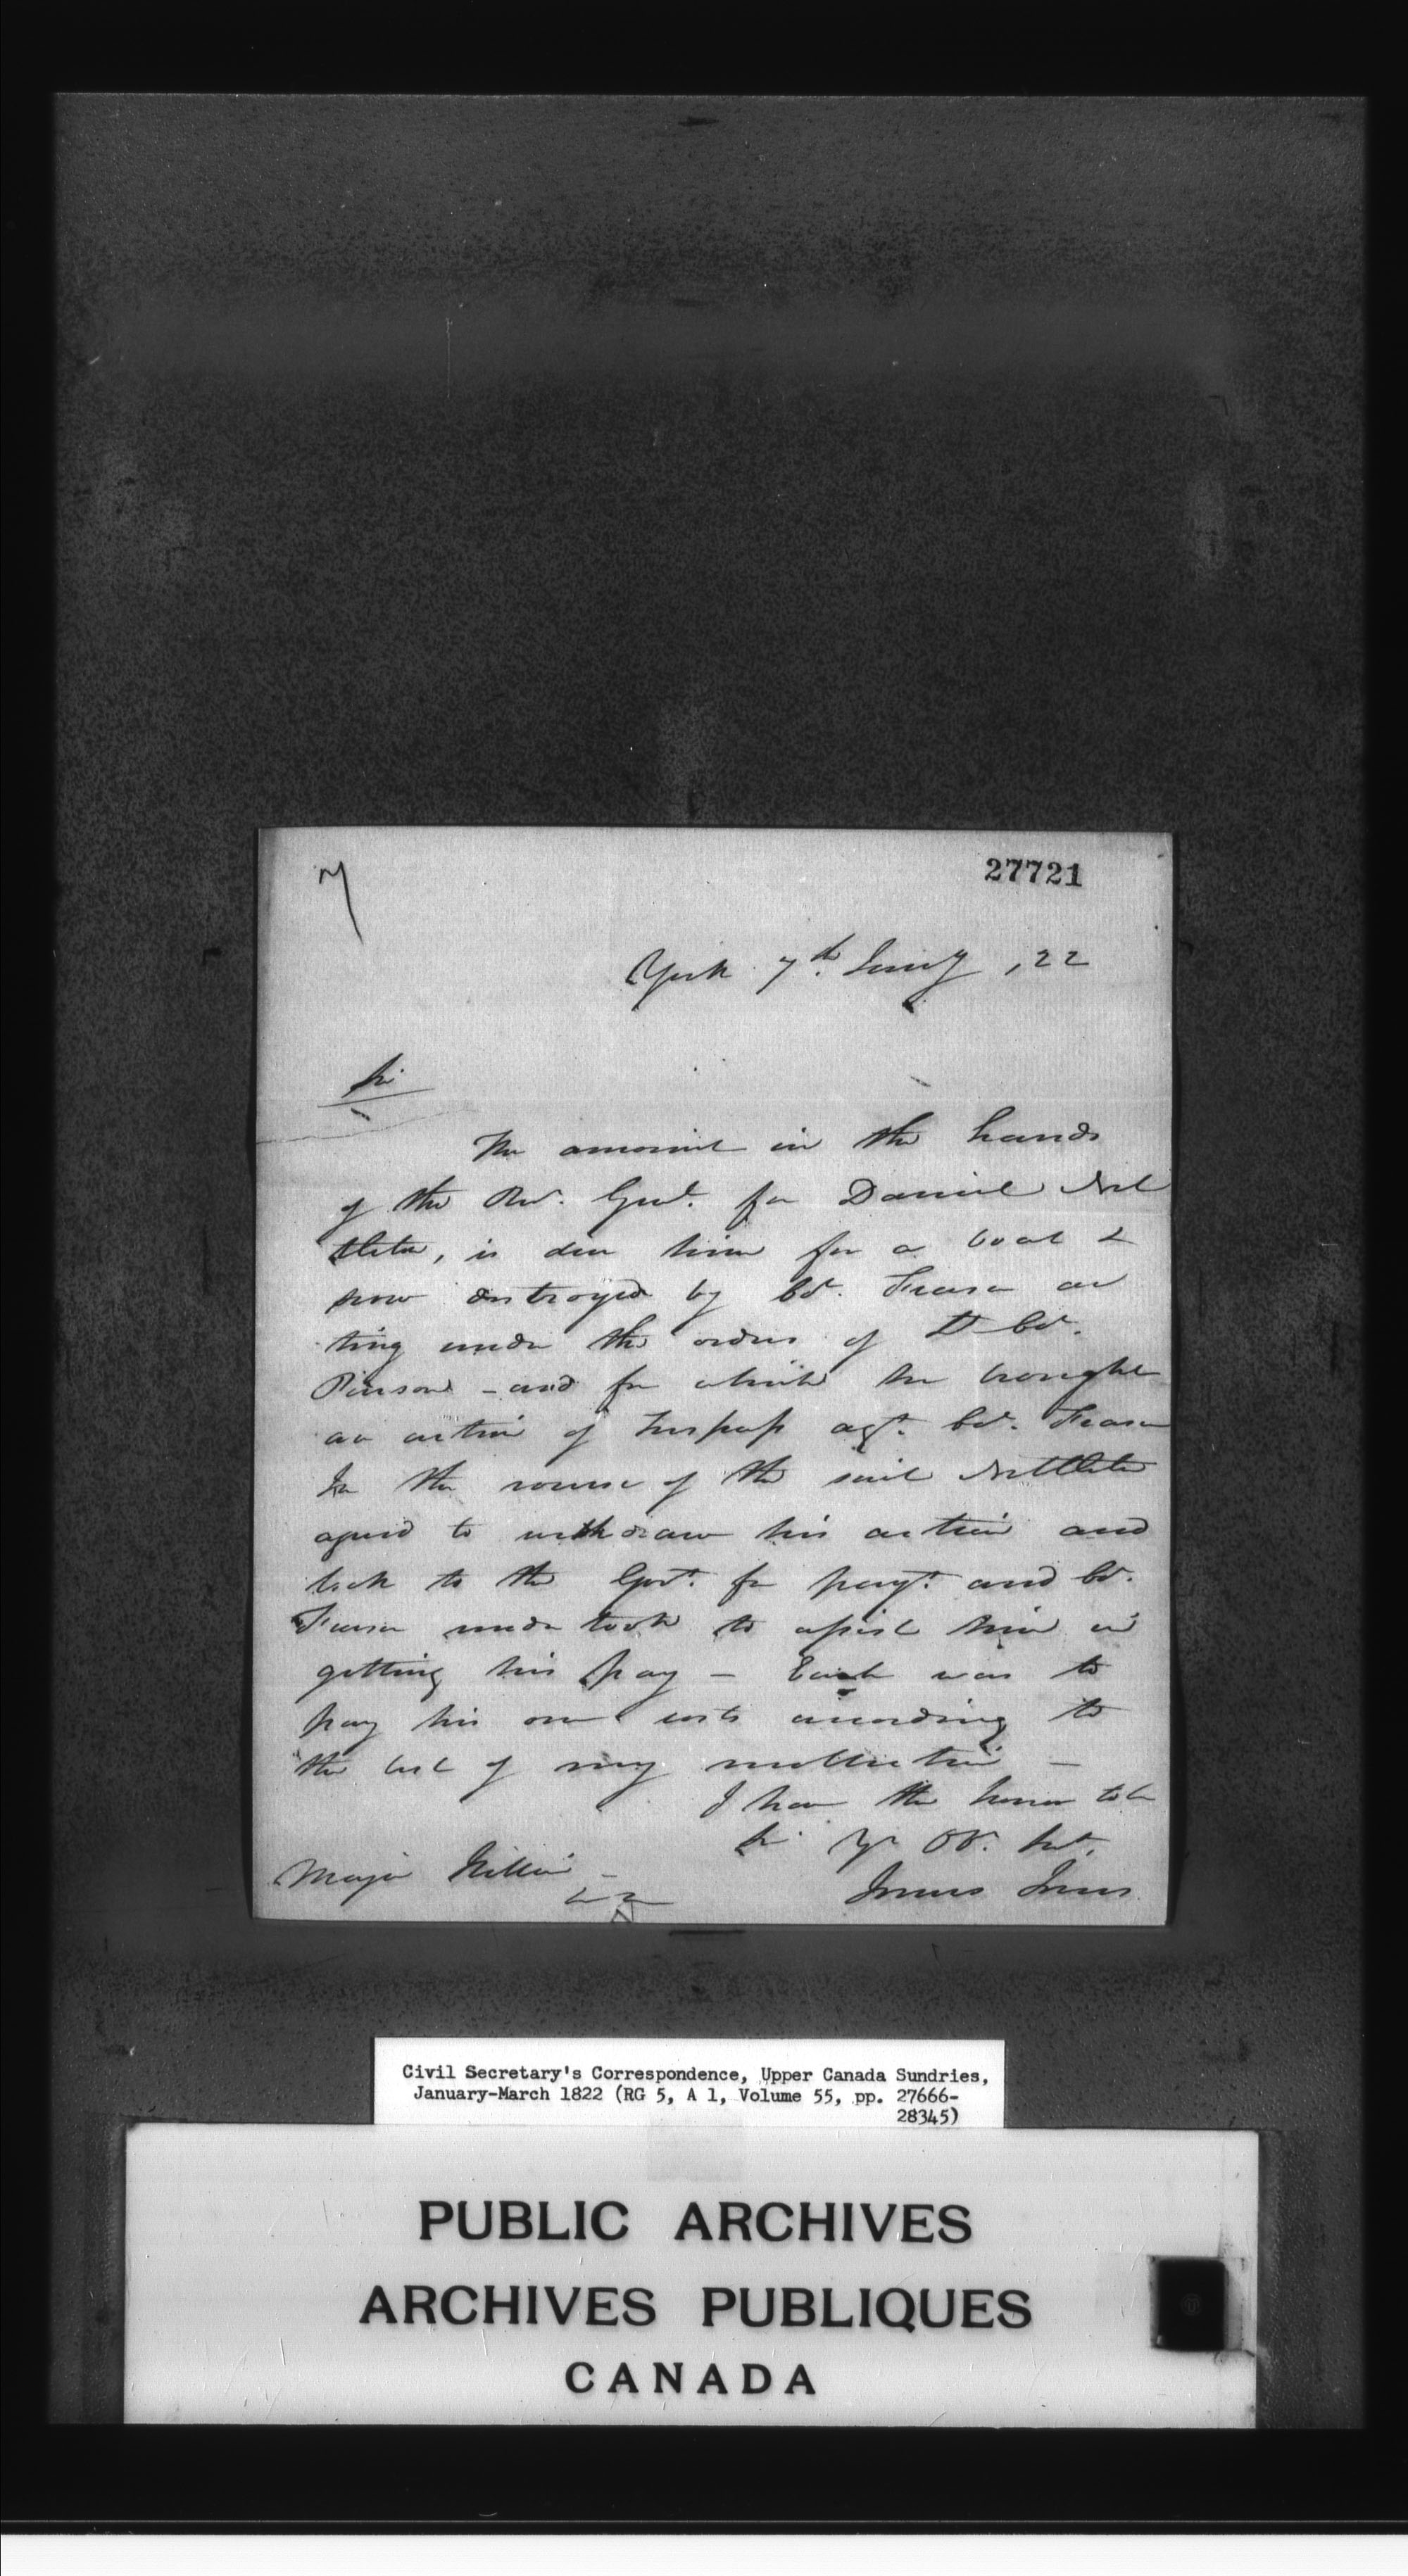 7
27721
York 7th Jany, 22
Sir
The amount in the hands
of the Rec. Genl. for Daniel Net
tleton, is due him for a boat &
destroyed by Col. Fraser ac
ting under the orders of Lt Col.
Pearson - and for which he brought
an action of trespass agt. Col. Fraser
In the course of the suit Nettleton
agreed to withdraw his action and
look to the Govt. for payt. and Col.
Fraser undertook to assist him in
getting his pay - Each was to
pay his own costs according to
the best of my recollection -
I have the honor to be
Sir Yr Ob. Sert.
Jonas Jones
Major Hillier
Civil Secretary's Correspondence, Upper Canada Sundries,
January-March 1822 (RG 5, A 1, Volume 55, pp. 27666-
28345)
PUBLIC ARCHIVES
ARCHIVES PUBLIQUES
CANADA